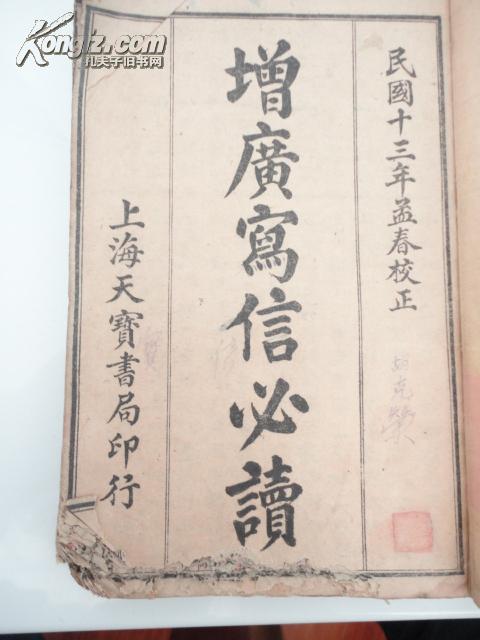 Kongfz.com
孔夫子旧书网
民國十三年孟春校正
增廣寫信必讀
上海天寶書局印行